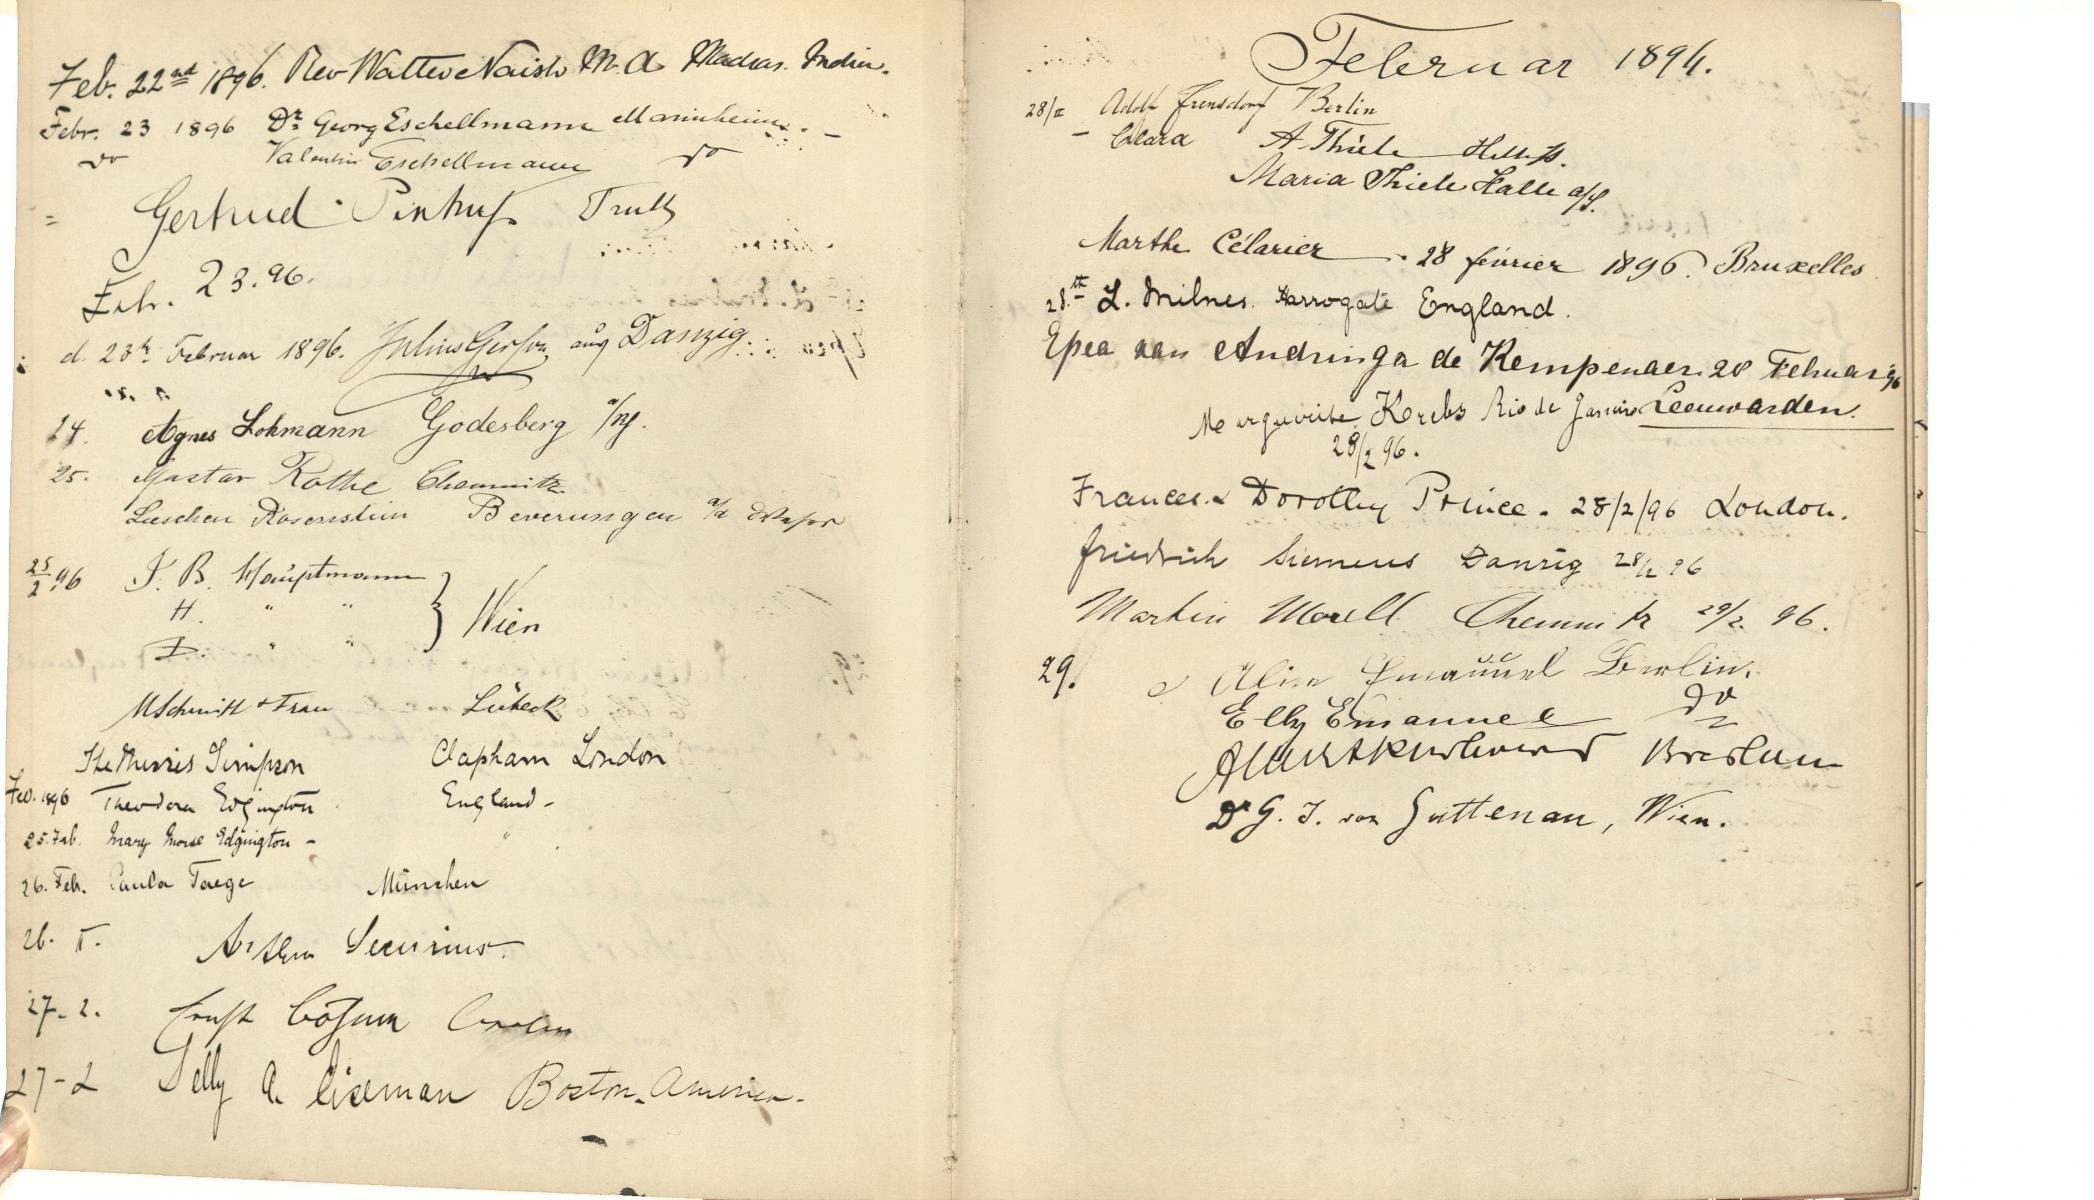 Feb. 22nd 1896. Rev Walter Naish M.A Madras. Indien.
Febr. 23 1896 Dr. Georg Eschellmann Mannheim. -
do Valentin Eschellmann do
= Gertrud
Febr. 23.96.
d. 23t. Februar 1896. Julius Gerson aus Danzig.
24. Agnes Lohmann Godesberg a/Rh.
25. Gustav Rothe Chemnitz.
Lieschen Rosenstein Beverungen a/d Weser
25/2 96 F. B. Hauptmann
H. " "
I. " " } Wien
M Schmitt + Frau Lübeck
The Misses Simpson Clapham London
Feb. 1896 Theodora Edgington England -
25. Feb. Mary Morse Edgington - "
26. Feb. Paula Taege München
26. II. Arthur
27. 2. Ernst
27-2 Selly A. Eiseman Boston. America.
Februar 1896.
28/II Adolf Frensdorf Berlin
- Clara A. Thiele Halle a/S.
Maria Thiele Halle a/S.
Marthe Célarier - 28 février 1896. Bruxelles
28.th L. Milnes. Harrogate England.
Epea van Andringa de Kempenaer. 28 Februar 96
Marguerite Krebs Rio de Janeiro Leeuwarden.
28/2 96.
Frances & Dorothy Prince. 28/2/96 London.
Friedrich Siemens Danzig 28/2 96
Martin Morell Chemnitz 29/2. 96.
29. Alice Emanuel Berlin.
Elly Emanuel do
Breslau
Dr G. J. von Guttenau, Wien.